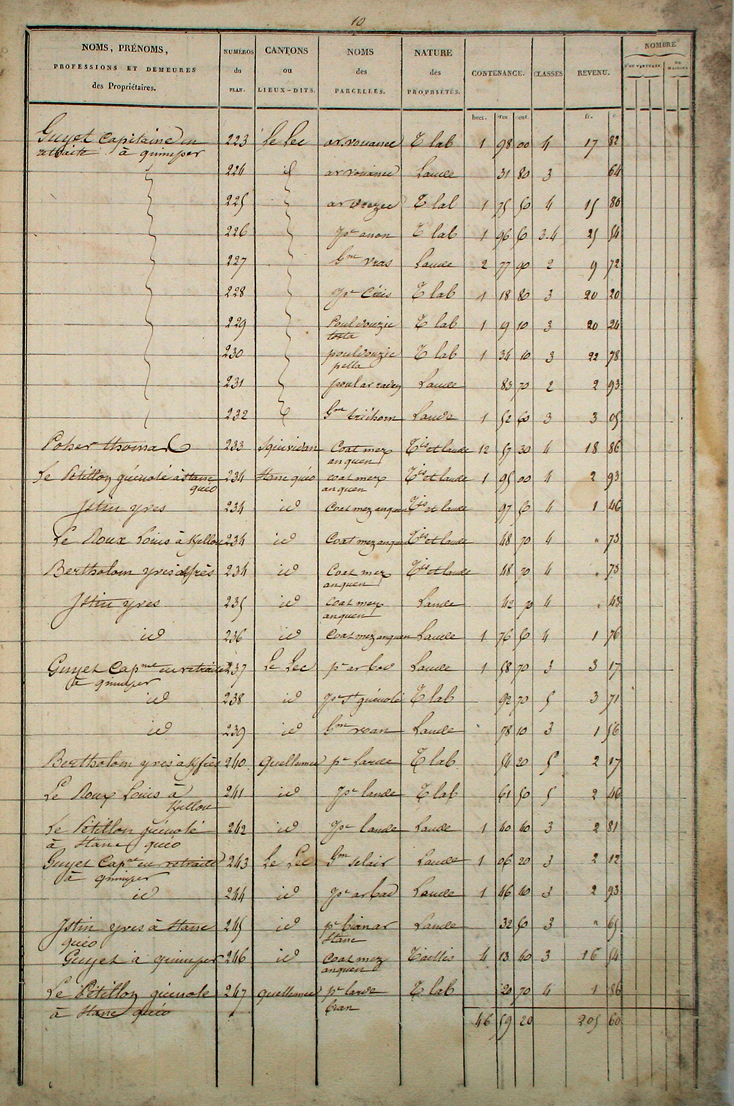 10
NOMS, PRÉNOMS, PROFESSIONS ET DEMEURES des Propriétaires. NUMÉROS du PLAN. CANTONS ou LIEUX-DITS. NOMS des PARCELLES. NATURE des PROPRIÉTÉS. CONTENANCE. CLASSES REVENU. NOMBRE
hect. ares cent. fr. c.
Guyet Capitaine en 223 Le Lec ar vouanec T lab 1 98 00 4 17 82
retraite à quimper
224 id ar vouanec Lande 31 80 3 64
225 ar T lab 1 75 50 4 15 80
226 anon T lab 1 96 50 3.4 25 54
227 Gm vras Lande 2 77 90 2 9 72
228 T lab 1 18 80 3 20 20
229 Poulvouzic T lab 1 19 10 3 20 24
230 poulvouzic T lab 1 34 10 3 22 78
pella
231 poul ar Lande 83 70 2 2 93
232 Gm Lande 1 52 60 3 3 05
Poher thomas 233 Coat mez Tie et lande 12 57 30 4 18 86
anquen
Le Petillon guénolé à stanc 234 stanc quéo coat mez Tie et lande 1 95 00 4 2 93
quéo anquen
Istin yves 234 id Coat mez anquen Tie et lande 97 50 4 1 46
Le Roux Louis à Kellou 234 id Coat mez anquen Tie et lande 48 70 4 " 73
Bertholom yves 234 id Coat mez Tie et lande 48 70 4 " 73
anquen
Istin yves 235 id coat mez Lande 42 70 4 "
anquen
id 236 id Coat mez anquen Lande 1 76 50 4 1 76
Guyet Capne en retraite 237 Le Lec pt ar Lande 1 58 70 3 3 17
à quimper
id 238 id st guénolé T lab 92 70 5 3 71
id 239 id Gm Lande 78 10 3 1 56
Bertholom yves 240 quellenec pt lande T lab 54 20 5 2 17
Le Roux Louis à 241 id lande T lab 61 50 5 2 46
Kellou
Le Petillon guénolé 242 id lande Lande 1 40 40 3 2 81
à Stanc quéo
Guyet Capne en retraite 243 Le Lec Gm Lande 1 06 20 3 2 12
à quimper
id 244 id ar Lande 1 46 40 3 2 93
Istin yves à Stanc 245 id pt bian ar Lande 32 50 3 " 65
quéo stanc
Guyet à quimper 246 id Coat mez Taillis 4 13 40 3 16 54
anquen
Le Petillon guénolé 247 quellenec pt lande T lab 20 70 4 1 86
à Stanc quéo bian
46 59 20 205 60